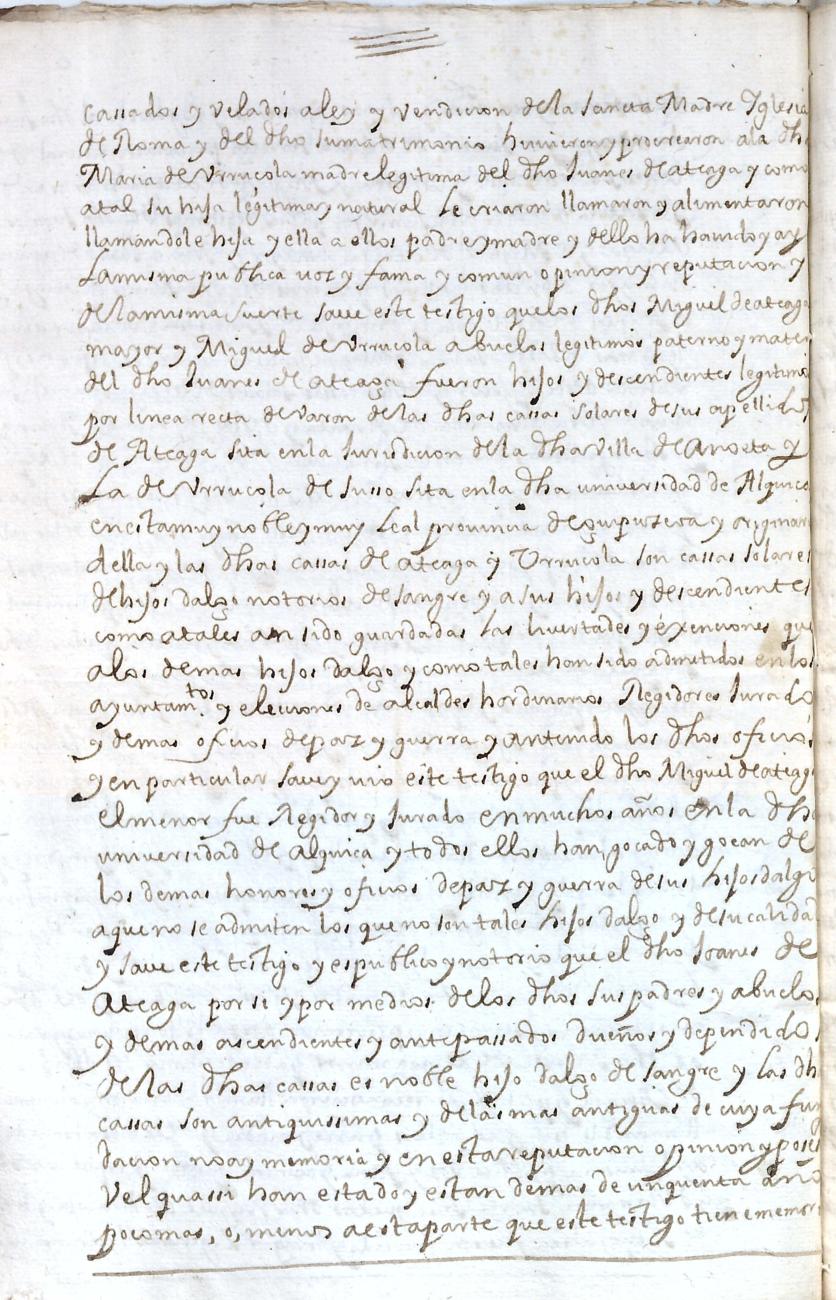 cassados y velados a ley y vendicion de la sancta Madre Iglesia
de Roma y del dho su matrimonio huvieron y procrearon a la dha
Maria de Urrucola madre legitima del dho Juanes de Ateaga y como
a tal su hija legitima y natural le criaron llamaron y alimentaron
llamandole hija y ella a ellos padre y madre y dello ha havido y ay
la misma publica voz y fama y comun opinion y reputacion y
de la misma suerte save este testigo que los dhos Miguel de ateaga
mayor y Miguel de Urrucola abuelos legitimos paterno y mater
del dho Juanes de ateaga fueron hijos y descendientes legitimo
por linea recta de varon de las dhas cassas solares de sus apellidos
de Ateaga sita en la Jurisdicion de la dha villa de Anoeta y
La de Urrucola de suso sita en la dha universidad de Alquica
en esta muy noble y muy Leal provincia de guipuzcoa y originari
della y las dhas cassas de ateaga y Urrucola son cassas solares
de hijos dalgo notorios de sangre y a sus hijos y descendientes
como a tales an sido guardadas las livertades y exenciones que
a los demas hijos dalgo y como tales han sido admitidos en los
ayuntamtos y eleciones de alcaldes hordinarios Regidores Jurado
y demas oficios de paz y guerra y an tenido los dhos oficios
y en particular save y vio este testigo que el dho Miguel de ateaga
el menor fue Regidor y Jurado en muchos años en la dha
universidad de alquica y todos ellos han gocado y gocan de
los demas honores y oficios de paz y guerra de sus hijosdalgo
a que no se admiten los que no son tales hijos dalgo y de su calidad
y save este testigo y es publico y notorio que el dho Joanes de
Ateaga por si y por medios de los dhos sus padres y abuelos
y demas ascendientes y antepassados dueños y dependidos
de las dhas cassas es noble hijo dalgo de sangre y las dh
cassas son antiquissimas y de las mas antiguas de cuya fun
dacion no ay memoria y en esta reputacion opinion y poses
vel quassi han estado y estan de mas de cinquenta año
poco mas, o, menos a esta parte que este testigo tiene memori